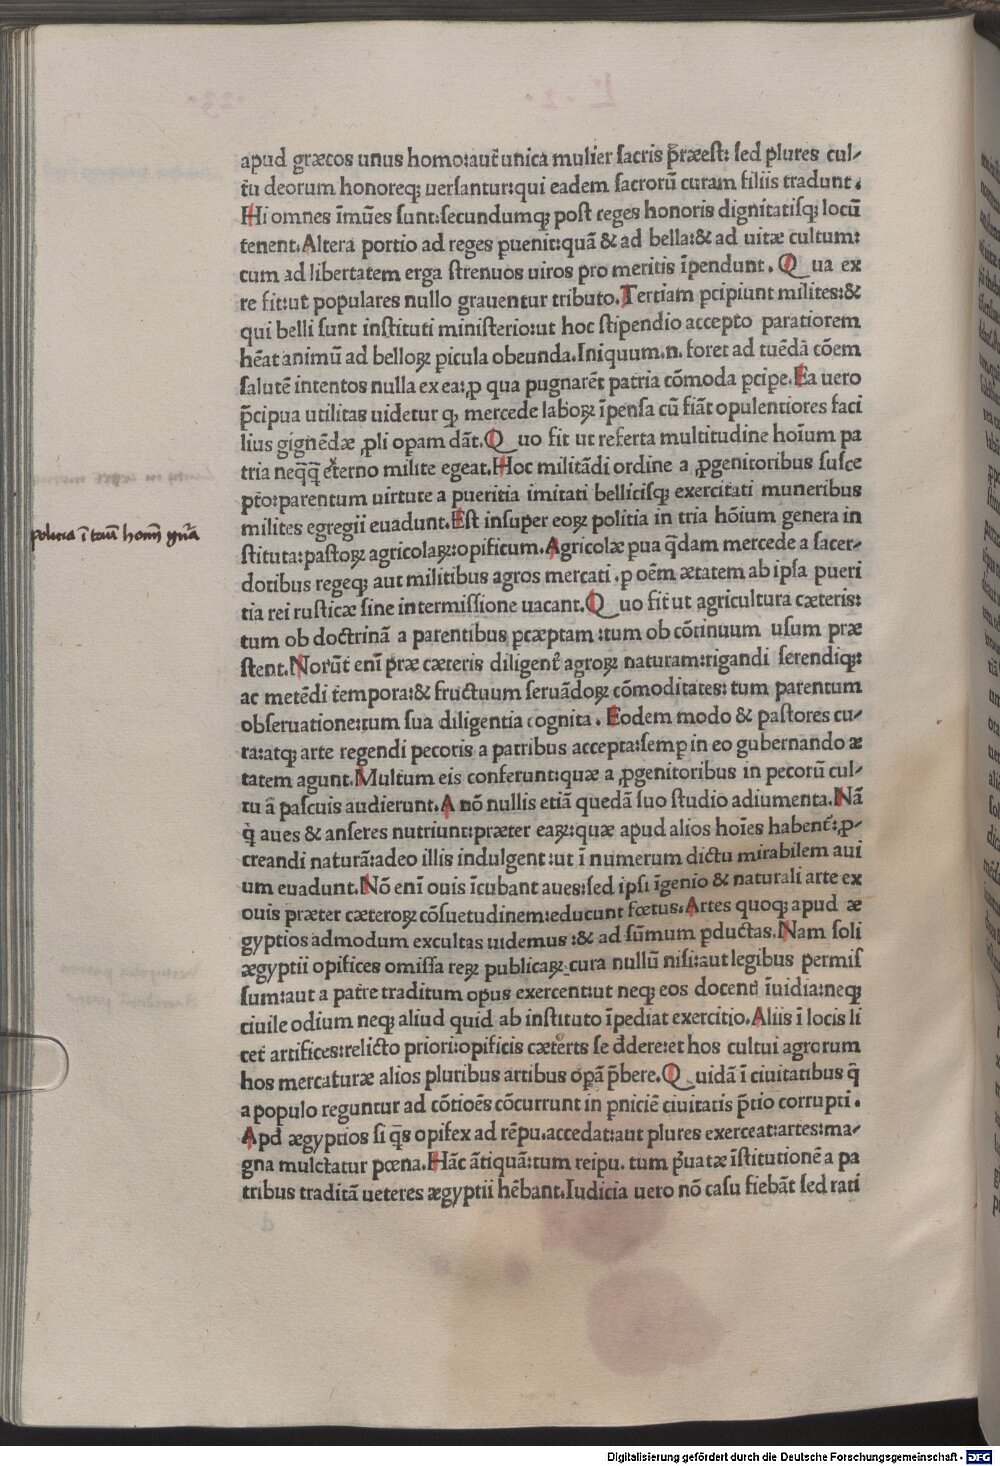 apud græcos unus homo:aut unica mulier ſacris p̄ræeſt: ſed plures cul⸗
tu deorum honoreqꝫ uerſantur:qui eadem ſacrorū curam filiis tradunt.
Hi omnes īmūes ſunt:ſecundumqꝫ poſt reges honoris dignitatiſqꝫ locū
tenent.Altera portio ad reges ꝑuenit:quā & ad bella:& ad uitæ cultum:
cum ad libertatem erga ſtrenuos uiros pro meritis īpendunt. Qua ex
re fit:ut populares nullo grauentur tributo.Tertiam ꝑcipiunt milites:&
qui belli ſunt inſtituti miniſterio:ut hoc ſtipendio accepto paratiorem
hēat animū ad belloꝝ ꝑicula obeunda.Iniquum.n. foret ad tuēdā cōem
ſalutē intentos nulla ex ea:ꝓ qua pugnarēt patria cōmoda ꝑciꝑe.Ea uero
p̄cipua utilitas uidetur ꝙ mercede laboꝝ īpenſa cū fiāt opulentiores faci
lius gignēdæ ꝓli opam dāt.Quo fit ut referta multitudine hoīum pa
tria neq̄q̄ eterno milite egeat.Hoc militādi ordine a ꝓgenitoribus ſuſce
pto:parentum uirtute a pueritia imitati belliciſqꝫ exercitati muneribus
milites egregii euadunt.Eſt inſuper eoꝝ politia in tria hōium genera in
ſtituta:paſtoꝝ agricolaꝝ:opificum.Agricolæ ꝑua q̄dam mercede a ſacer⸗
dotibus regeqꝫ aut militibus agros mercati.ꝑ oēm ætatem ab ipſa pueri
tia rei ruſticæ ſine intermiſſione uacant.Quo fit ut agricultura cæteris:
tum ob doctrinā a parentibus ꝑcæptam:tum ob cōtinuum uſum præ
ſtent.Norūt enī præ cæteris diligent̉ agroꝝ naturam:rigandi ſerendiqꝫ:
ac metēdi tempora:& fructuum ſeruādoꝝ cōmoditates: tum parentum
obſeruatione:tum ſua diligentia cognita. Eodem modo & paſtores cu⸗
ra:atqꝫ arte regendi pecoris a patribus accepta:ſemꝑ in eo gubernando æ
tatem agunt.Multum eis conferunt:quæ a ꝓgenitoribus in pecorū cul⸗
tu ā paſcuis audierunt.A nō nullis etiā quedā ſuo ſtudio adiumenta.Nā
q̇ aues & anſeres nutriunt:præter eaꝝ:quæ apud alios hoīes habent̉:ꝓ⸗
creandi naturā:adeo illis indulgent:ut ī numerum dictu mirabilem aui
um euadunt.Nō enī ouis īcubant aues:ſed ipſi īgenio & naturali arte ex
ouis præter cæteroꝝ cōſuetudinem:educunt fœtus.Artes quoqꝫ apud æ
gyptios admodum excultas uidemus:& ad ſūmum ꝑductas.Nam ſoli
ægyptii opifices omiſſa reꝝ publicaꝝ cura nullū niſi:aut legibus permiſ
ſum:aut a patre traditum opus exercent:ut neqꝫ eos docenti īuidia:neqꝫ
ciuile odium neqꝫ aliud quid ab inſtituto īpediat exercitio.Aliis ī locis li
cet artifices:relicto priori:opificis cæteris ſe d̄dere:et hos cultui agrorum
hos mercaturæ alios pluribus artibus opā p̄bere.Quidā ī ciuitatibus q̄
a populo reguntur ad cōtioēs cōcurrunt in ꝑniciē ciuitatis p̄tio corrupti.
Apd̄ ægyptios ſi q̄s opifex ad rēpu.accedat:aut plures exerceat:artes:ma⸗
gna mulctatur pœna.Hāc ātiquā:tum reipu. tum p̄uatæ īſtitutionē a pa
tribus traditā ueteres ægyptii hēbant.Iudicia uero nō caſu fiebāt ſed rati
politia ī tria hoīm gn̄a
Digitalisierung gefördert durch die Deutsche Forschungsgemeinschaft - DFG